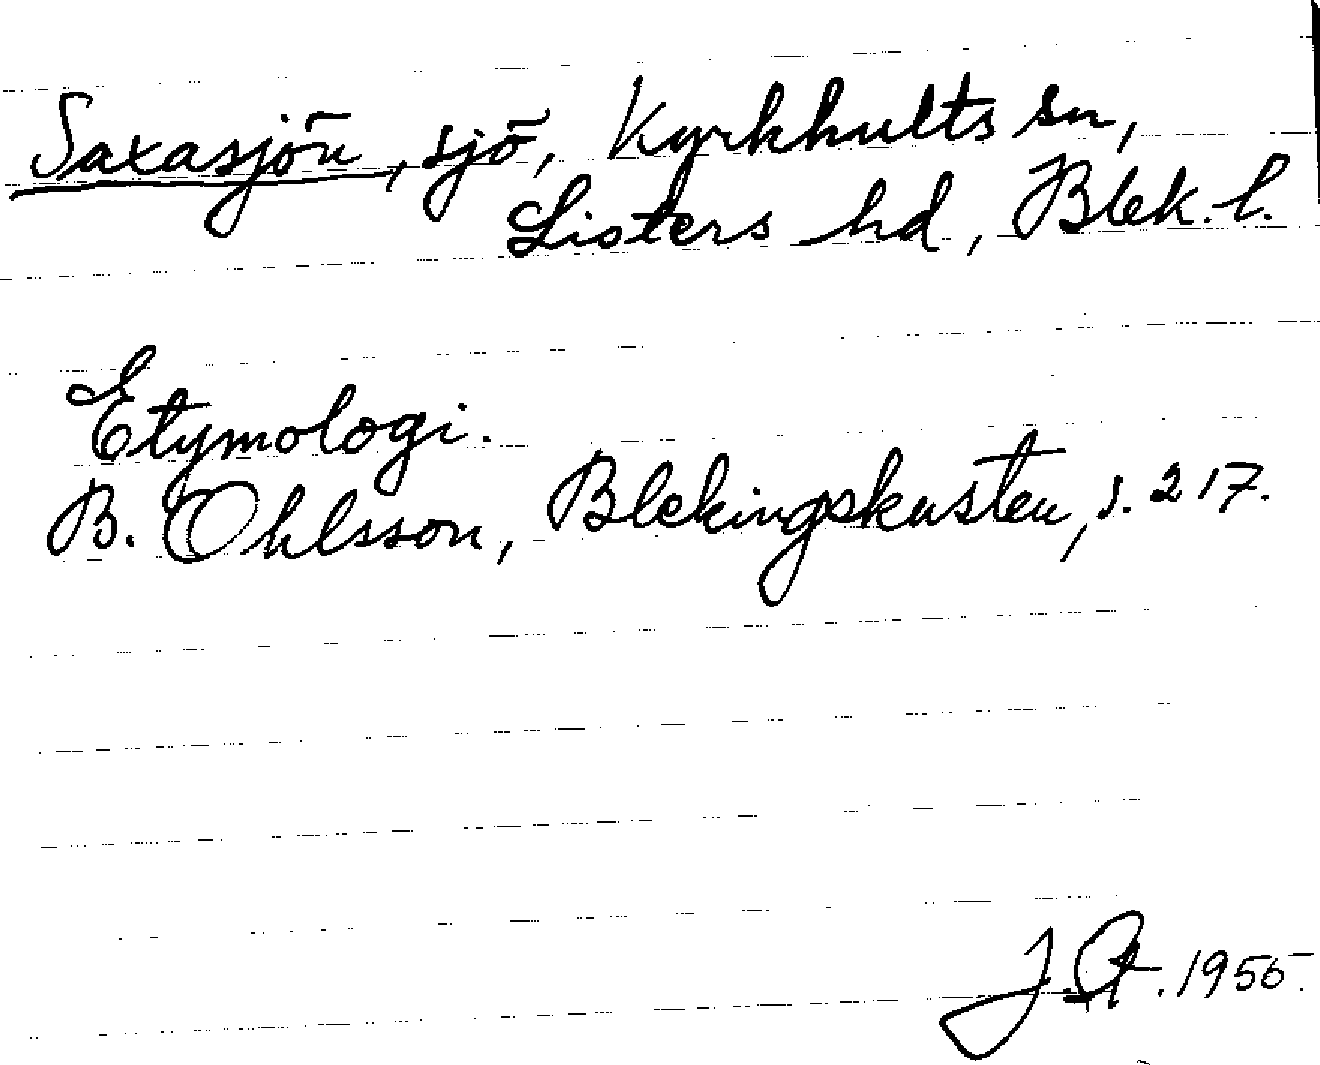 Saxasjön, sjö, Kyrkhults sn,
Listers hd, Blek. l.
Etymologi.
B. Ohlsson, Blekingskusten, s. 217.
J.